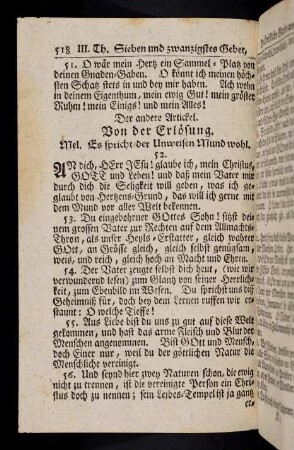 518 III. Th. Sieben und zwanzigstes Gebet,
51. O wär mein Hertz ein Sammel-Platz von
deinen Gnaden-Gaben. O könt ich meinen höch-
sten Schatz stets in und bey mir haben. Ach wohn
in deinem Eigenthum, mein ewig Gut! mein gröster
Ruhm! mein Einigs! und mein Alles!
Der andere Artickel.
Von der Erlösung.
Mel. Es spricht der Unweisen Mund wohl.
52.
AN dich, HErr JEsu! glaube ich, mein Christus,
GOTT und Leben! und daß mein Vater mir
durch dich die Seligkeit will geben, was ich ge-
glaubt von Hertzens-Grund, das will ich gerne
mit dem Mund vor aller Welt bekennen.
53. Du eingebohrner GOttes Sohn! sitzst dei-
nem grossen Vater zur Rechten auf dem Allmachts-
Thron, als unser Heyls-Erstatter, gleich wahrer
GOtt, an Grösse gleich, gleich selbst genugsam,
weis, und reich, gleich hoch an Macht und Ehren.
54. Der Vater zeugte selbst dich heut, (wie wir
verwunderend lesen) zum Glantz von seiner Herrlich-
keit, zum Ebenbild im Wesen. Du sprichst uns diß
Geheimniß für, doch bey dem Lernen ruffen wir er-
staunt: O welche Tieffe!
55. Aus Liebe bist du uns zu gut auf diese Welt
gekommen, und hast das arme Fleisch und Blut der
Menschen angenommen. Bist GOtt und Mensch,
doch Einer nur, weil du der göttlichen Natur die
Menschliche vereinigt.
56. Und seynd hier zwey Naturen schon, die ewig
nicht zu trennen, ist die vereinigte Person ein Chri-
stus doch zu nennen; sein Leibes-Tempel ist ja gantz